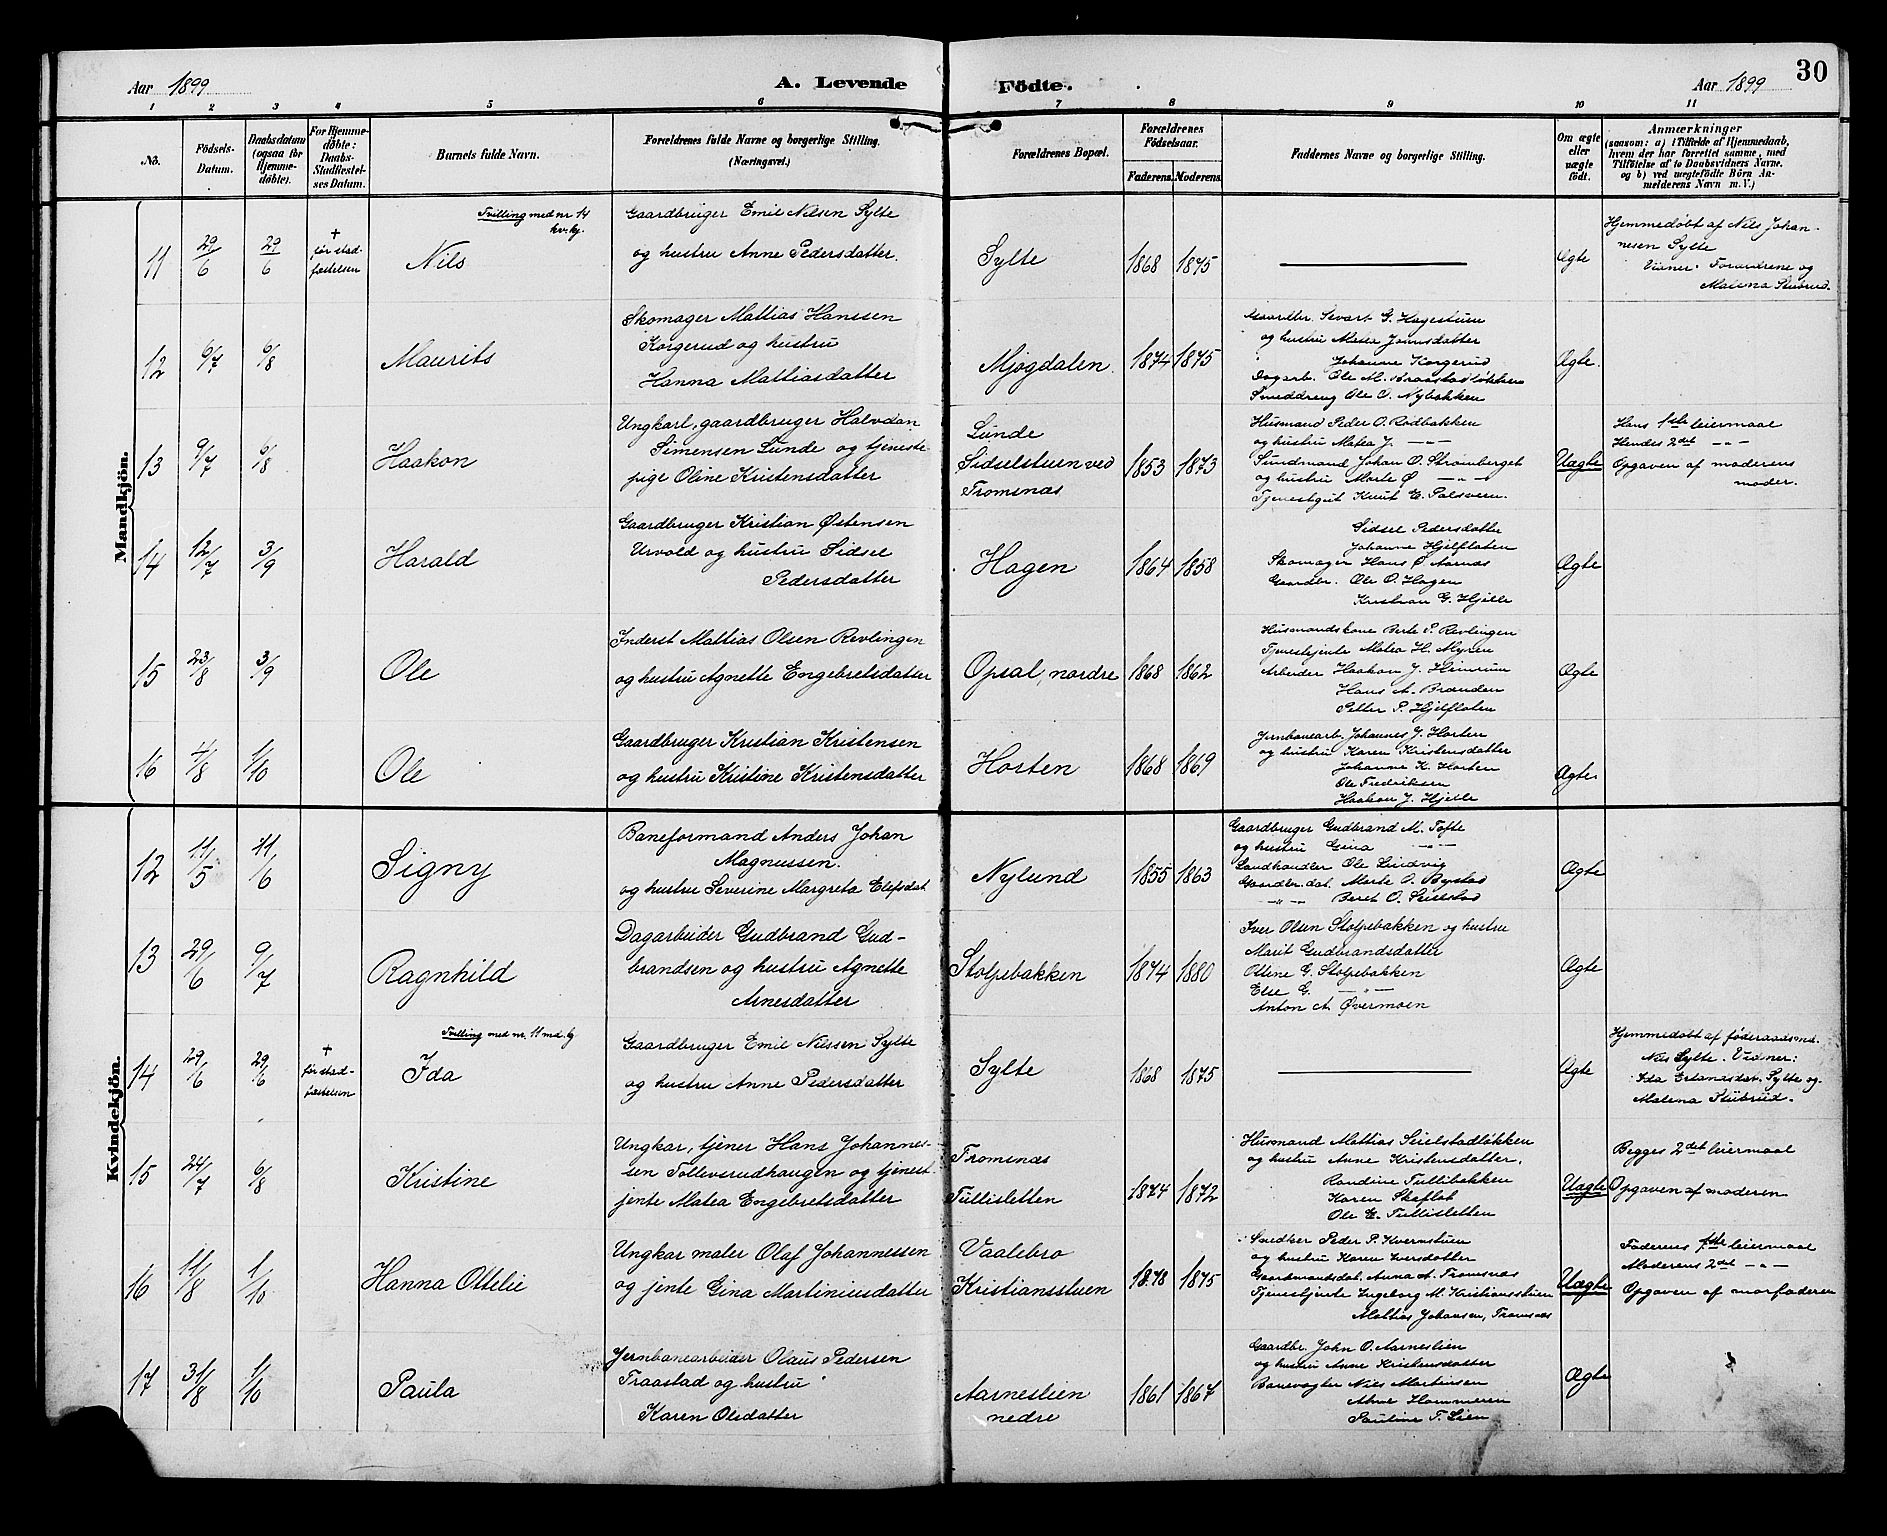 Aar 1899 A. Levende Födte. Aar 1899 30
1 2 3 4 5 6 7 8 9 10 11
No. Födsels-Datum. Daabsdatum (ogsaa for Hjemme-döbte). For Hjemme-döbte: Daabs-Stadfæstel-ses Datum. Barnets fulde Navn. Forældrenes fulde Navne og borgerlige Stilling. (Næringsvei.) Forældrenes Bopæl. Forældrenes Födselsaar. Faderens. Moderens. Faddernes Navne og borgerlige Stilling. Om ægte eller uægte födt. Anmærkninger
(saasom: a) i Tilfælde af Hjemmedaab,
hvem der har forrettet samme, med
Tilföielse af to Daabsvidners Navne,
og b) ved uægtefödte Börn An-
melderens Navn m. V.)
Mandkjön.
11 29/6 29/6 + før stad-
fæstelsen
Tvilling med nr 14
kv.kj.
Nils
Gaardbruger Emil Nilsen Sylte
og hustru Anne Pedersdatter.
Sylte 1868 1875
Ægte
Hjemmedøbt af Nils Johan-
nesen Sylte
Vidner: Forældrene og
Malena Stubrud.
12 6/7 6/8 Maurits
Skomager Mattias Hanssen
Korgerud og hustru
Hanna Mattiasdatter
Mjøgdalen. 1874 1875
Gaardbr. Sevart G. Hagestuen
og hustru Matea Jonnsdatter
Johanne Korgerud
Dagarb. Ole M. Kraastadløkken
Smeddreng Ole O. Nybakken
Ægte.
13 9/7 6/8 Haakon
Ungkarl, gaardbruger Halvdan
Simensen Lunde og tjeneste-
pige Oline Kristensdatter
Lunde
Sidselstuen ved
Tromsnæs
1853 1873
Husmand Peder O. Rødbakken
og hustru Matea J. —"—
Sundmand Johan O. Strømberget
og hustru Marte Ø —"—
Tjenestgut Knut E. Palsveen.
Uægte
Hans 1ste leiermaal
Hendes 2det —"—
Opgaven af moderens
moder.
14 12/7 3/9 Harald
Gaardbruger Kristian Østensen
Urvold og hustru Sidsel
Pedersdatter
Hagen 1864 1858
Sidsel Pedersdatter
Johanne Hjelfloten
Skomager Hans Ø Aarnæs
Gaardbr. Ole O. Hagen
Kristian G. Hjelle
Ægte
15 23/8 3/9 Ole
Inderst Mattias Olsen Revlingen
og hustru Agnette Engebretsdatter
Opsal, nordre 1868 1862
Husmandskone Berte P. Revlingen
Tjenestejente Matea H. Myren
Arbeider Haakon J. Heimrum
Hans A. Brænden
Petter P. Hjelfloten
Ægte
16 4/8 1/10 Ole
Gaardbruger Kristian Kristensen
og hustru Kristine Kristensdatter
Horten 1868 1869
Jernbanearb. Johannes J. Horten
og hustru Karen Kristensdatter
Johanne K. Horten
Ole Fredriksen
Haakon J. Hjelle
Ægte
Kvindekjön.
12 11/5 11/6 Signy
Baneformand Anders Johan
Magnussen.
og hustru Severine Margreta Elefsdat.
Nylund 1855 1863
Gaardbruger Gudbrand M. Tofte
og hustru Gina —"—
Landhandler Ole Lindvig
Gaardbr.dat. Marte O. Bystad
—"— Beret O. Seielstad
Ægte
13 29/6 9/7 Ragnhild
Dagarbeider Gudbrand Gud-
brandsen og hustru Agnette
Arnesdatter
Stolpebakken 1874 1880
Iver Olsen Stolpebakken og hustru
Marit Gudbrandsdatter
Oline G. Stolpebakken
Else G. —"—
Anton A. Øvermoen
Ægte
14 29/6 29/6 + før stad-
fæstelsen
Tvilling med nr. 11 md. kj
Ida
Gaardbruger Emil Nilssen Sylte
og hustru Anne Pedersdatter
Sylte 1868 1875
Ægte
Hjemmedøbt af føderaadsmd.
Nils Sylte. Vidner:
Ida Erlandsdat. Sylte og
Malena Stubrud.
15 24/7 6/8 Kristine
Ungkar, tjener Hans Johannes-
sen Tollevsrudhaugen og tjenest-
jente Matea Engebretsdatter
Tromsnæs
Tullisletten
1874 1872
Husmand Mattias Seielstadløkken
og hustru Anne Kristensdatter.
Randine Tullibakken
Karen Skeflot
Ole E. Tullisletten
Uægte
Begges 2det leiermaal
Opgaven af moderen
16 11/8 1/10 Hanna Ottelie
Ungkar maler Olaf Johannessen
og jente Gina Martiniusdatter
Vaalebro
Kristiansstuen
1878 1875
Snedker Peder P. Kvernstuen
og hustru Karen Iversdatter
Gaardmandsdat. Anna A. Tromsnæs
Tjenestejente Ingeborg M. Kristiansstuen
Mattias Johansen, Tromsnæs
Uægte
Faderens 1ste leiermaal
Moderens 2det —"—
Opgaven af morfaderen
17 31/8 1/10 Paula
Jernbanearbeider Olaus Pedersen
Traastad og hustru
Karen Olsdatter
Aarneslien
nedre
1861 1867
Gaardbr. John O. Aarneslien
og hustru Anne Kristensdatter
Banevogter Nils Martinsen
Anne Hammeren
Pauline T. Lien
Ægte